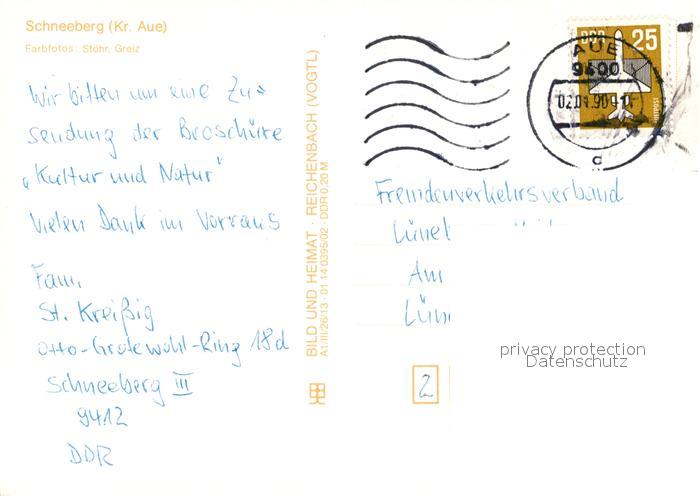 Schneeberg (Kr. Aue)
Farbfotos: Stöhr, Greiz
Wir bitten um eine Zu-
sendung der Broschüre
„Kultur und Natur"
Vielen Dank im Vorraus
Fam.
St. Kreißig
Otto-Grotewohl-Ring 18d
Schneeberg III
9412
DDR
BILD UND HEIMAT · REICHENBACH (VOGTL)
A1/III/26/13 · 01 14 0395/02 · DDR 0,20 M
DDR 25
LUFTPOST
AUE
9400
02.01.90
a
Fremdenverkehrsverband
Lünel
Am
Lün
2
privacy protection
Datenschutz